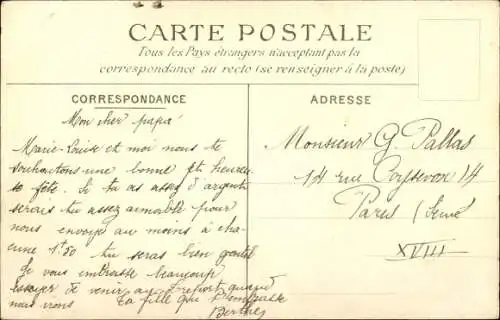 CARTE POSTALE
Tous les Pays étrangers n'acceptant pas la
correspondance au recto (se renseigner à la poste)
CORRESPONDANCE
Mon cher papa
Marie-Louise et moi nous te
souhaitons une bonne et heureu-
se fête. Si tu as assez d'argent
serais tu assez aimable pour
nous envoyer au moins à cha-
cune 1f50 tu seras bien gentil
Je vous embrasse beaucoup
essayer de venir au Tréport quand
nous irons
Ta fille qui t'embrasse
Berthe
ADRESSE
Monsieur G. Pallas
14 rue Coysevox 14
Paris (Seine
XVIII